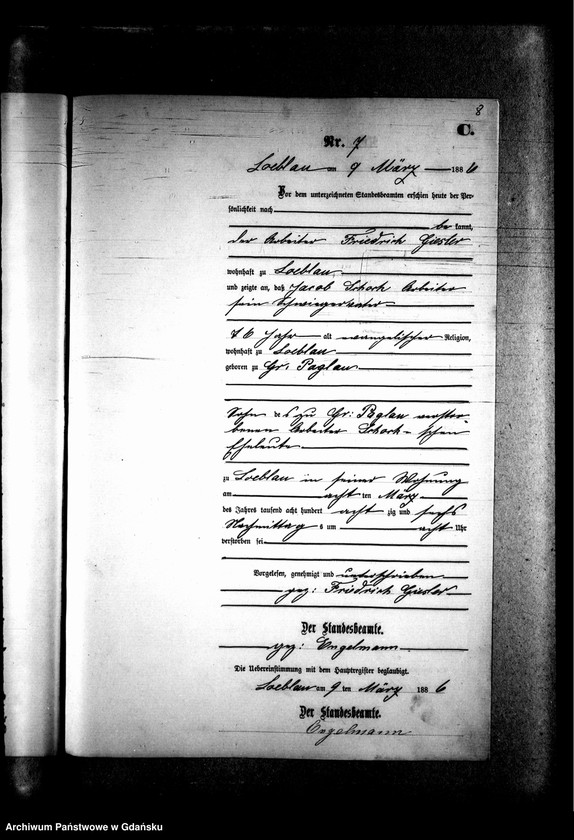 8
C.
Nr. 7
Loeblau am 9 März 1886
Vor dem unterzeichneten Standesbeamten erschien heute der Per-
sönlichkeit nach
be kannt,
der Arbeiter Friedrich Giesler
wohnhaft zu Loeblau
und zeigte an, daß Jacob Schoch Arbeiter
sein Schwiegervater
76 Jahr alt evangelischer Religion,
wohnhaft zu Loeblau
geboren zu Gr: Paglau
Sohn des zu Gr: Paglau verstor
benen Arbeiter Schoch-schen
Eheleute
zu Loeblau in seiner Wohnung
am acht ten März
des Jahres tausend acht hundert acht zig und sechs
Nachmittag s um acht Uhr
verstorben sei
Vorgelesen, genehmigt und unterschrieben
gez: Friedrich Giesler
Der Standesbeamte.
gez: Engelmann
Die Uebereinstimmung mit dem Hauptregister beglaubigt.
Loeblau am 9 ten März 1886
Der Standesbeamte.
Engelmann
Archiwum Państwowe w Gdańsku